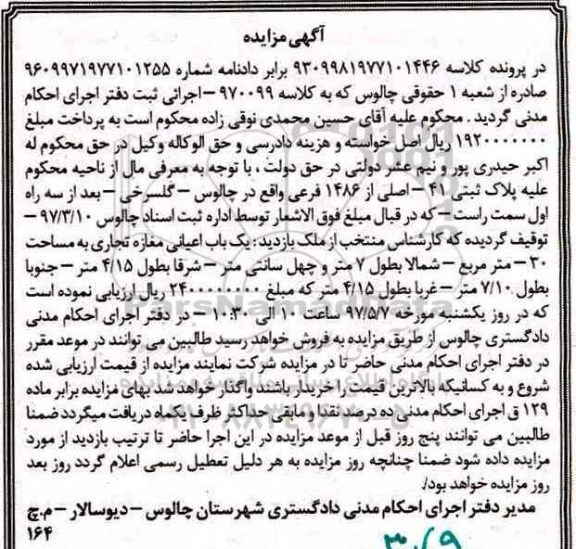 آگهی مزایده
در پرونده کلاسه ۹۳۰۹۹۸۱۹۷۷۱۰۱۴۴۶ برابر دادنامه شماره ۹۶۰۹۹۷۱۹۷۷۱۰۱۲۵۵
صادره از شعبه ۱ حقوقی چالوس که به کلاسه ۹۷۰۰۹۹ – اجرائی ثبت دفتر اجرای احکام
مدنی گردید . محکوم علیه آقای حسین محمدی نوقی زاده محکوم است به پرداخت مبلغ
۱۹۲۰۰۰۰۰۰۰ ریال اصل خواسته و هزینه دادرسی و حق الوکاله وکیل در حق محکوم له
اکبر حیدری پور و نیم عشر دولتی در حق دولت ، با توجه به معرفی مال از ناحیه محکوم
علیه پلاک ثبتی ۴۱ – اصلی از ۱۴۸۶ فرعی واقع در چالوس – گلسرخی – بعد از سه راه
اول سمت راست – که در قبال مبلغ فوق الاشعار توسط اداره ثبت اسناد چالوس ۹۷/۳/۱۰ –
توقیف گردیده که کارشناس منتخب از ملک بازدید : یک باب اعیانی مغازه تجاری به مساحت
۳۰ – متر مربع – شمالا بطول ۷ متر و چهل سانتی متر – شرقا بطول ۴/۱۵ متر – جنوبا
بطول ۷/۱۰ متر – غربا بطول ۴/۱۵ متر که مبلغ ۲۴۰۰۰۰۰۰۰۰ ریال ارزیابی نموده است
که در روز یکشنبه مورخه ۹۷/۵/۷ ساعت ۱۰ الی ۱۰:۳۰ – در دفتر اجرای احکام مدنی
دادگستری چالوس از طریق مزایده به فروش خواهد رسید طالبین می توانند در موعد مقرر
در دفتر اجرای احکام مدنی حاضر تا در مزایده شرکت نمایند مزایده از قیمت ارزیابی شده
شروع و به کسانیکه بالاترین قیمت را خریدار باشند واگذار خواهد شد بهای مزایده برابر ماده
۱۲۹ ق اجرای احکام مدنی ده درصد نقدا و مابقی حداکثر ظرف یکماه دریافت میگردد ضمنا
طالبین می توانند پنج روز قبل از موعد مزایده در این اجرا حاضر تا ترتیب بازدید از مورد
مزایده داده شود ضمنا چنانچه روز مزایده به هر دلیل تعطیل رسمی اعلام گردد روز بعد
روز مزایده خواهد بود/.
مدیر دفتر اجرای احکام مدنی دادگستری شهرستان چالوس – دیوسالار – م.چ
۱۶۴